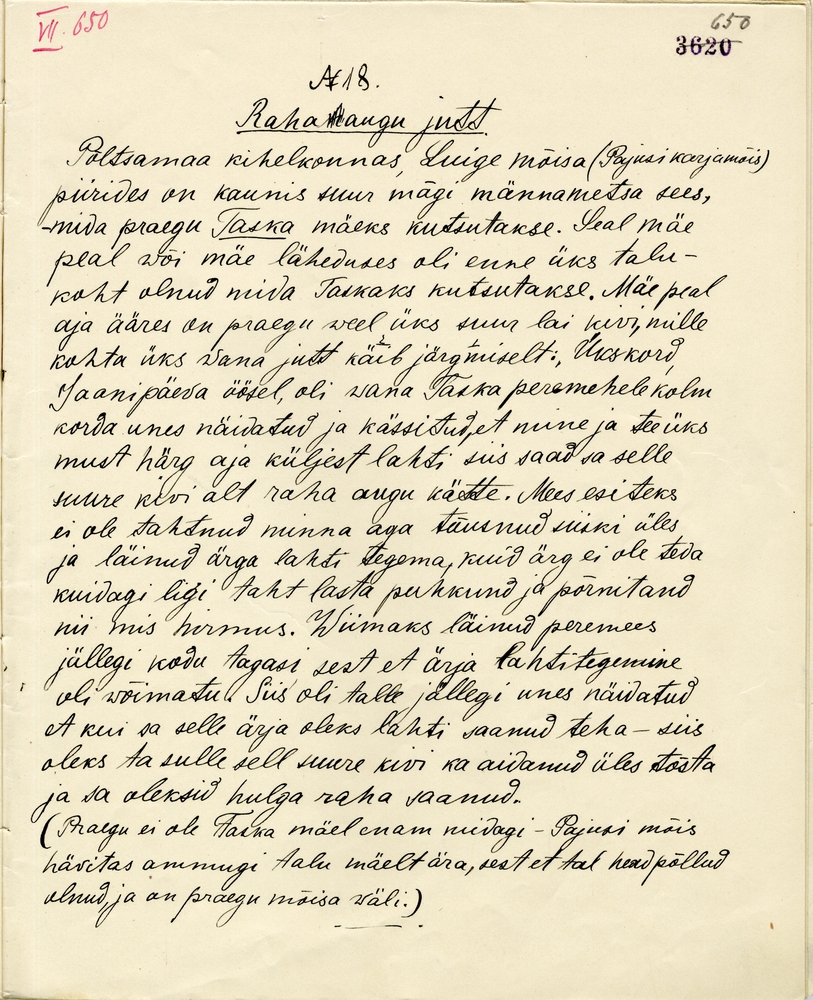 VII. 650
650
3620
№ 18.
Raha augu jutt.
Põltsamaa kihelkonnas, Luige mõisa (Pajusi karjamõis)
piirides on kaunis suur mägi männametsa sees,
mida praegu Taska mäeks kutsutakse. Seal mäe
peal wõi mäe läheduses oli enne üks talu-
koht olnud mida Taskaks kutsutakse. Mäe peal
aja ääres on praegu weel üks suur lai kivi, mille
kohta üks wana jutt käib järgmiselt: „Ükskord,
Jaanipäeva öösel, oli wana Taska peremehele kolm
korda unes näidatud ja kässitud, et mine ja tee üks
must härg aja küljest lahti siis saad sa selle
suure kivi alt raha augu kätte. Mees esiteks
ei ole tahtnud minna aga tõusnud siiski üles
ja läinud ärga lahti tegema, kuid ärg ei ole teda
kuidagi ligi taht lasta puhkund ja põrnitand
nii mis hirmus. Wiimaks läinud peremees
jällegi kodu tagasi sest et ärja lahtitegemine
oli wõimatu. Siis oli talle jällegi unes näidatud
et kui sa selle ärja oleks lahti saanud teha – siis
oleks ta sulle sell suure kivi ka aidanud üles tõsta
ja sa oleksid hulga raha saanud.
(Praegu ei ole Taska mäel enam midagi – Pajusi mõis
hävitas ammugi talu mäelt ära, sest et tal head põllud
olnud, ja on praegu mõisa wäli.)